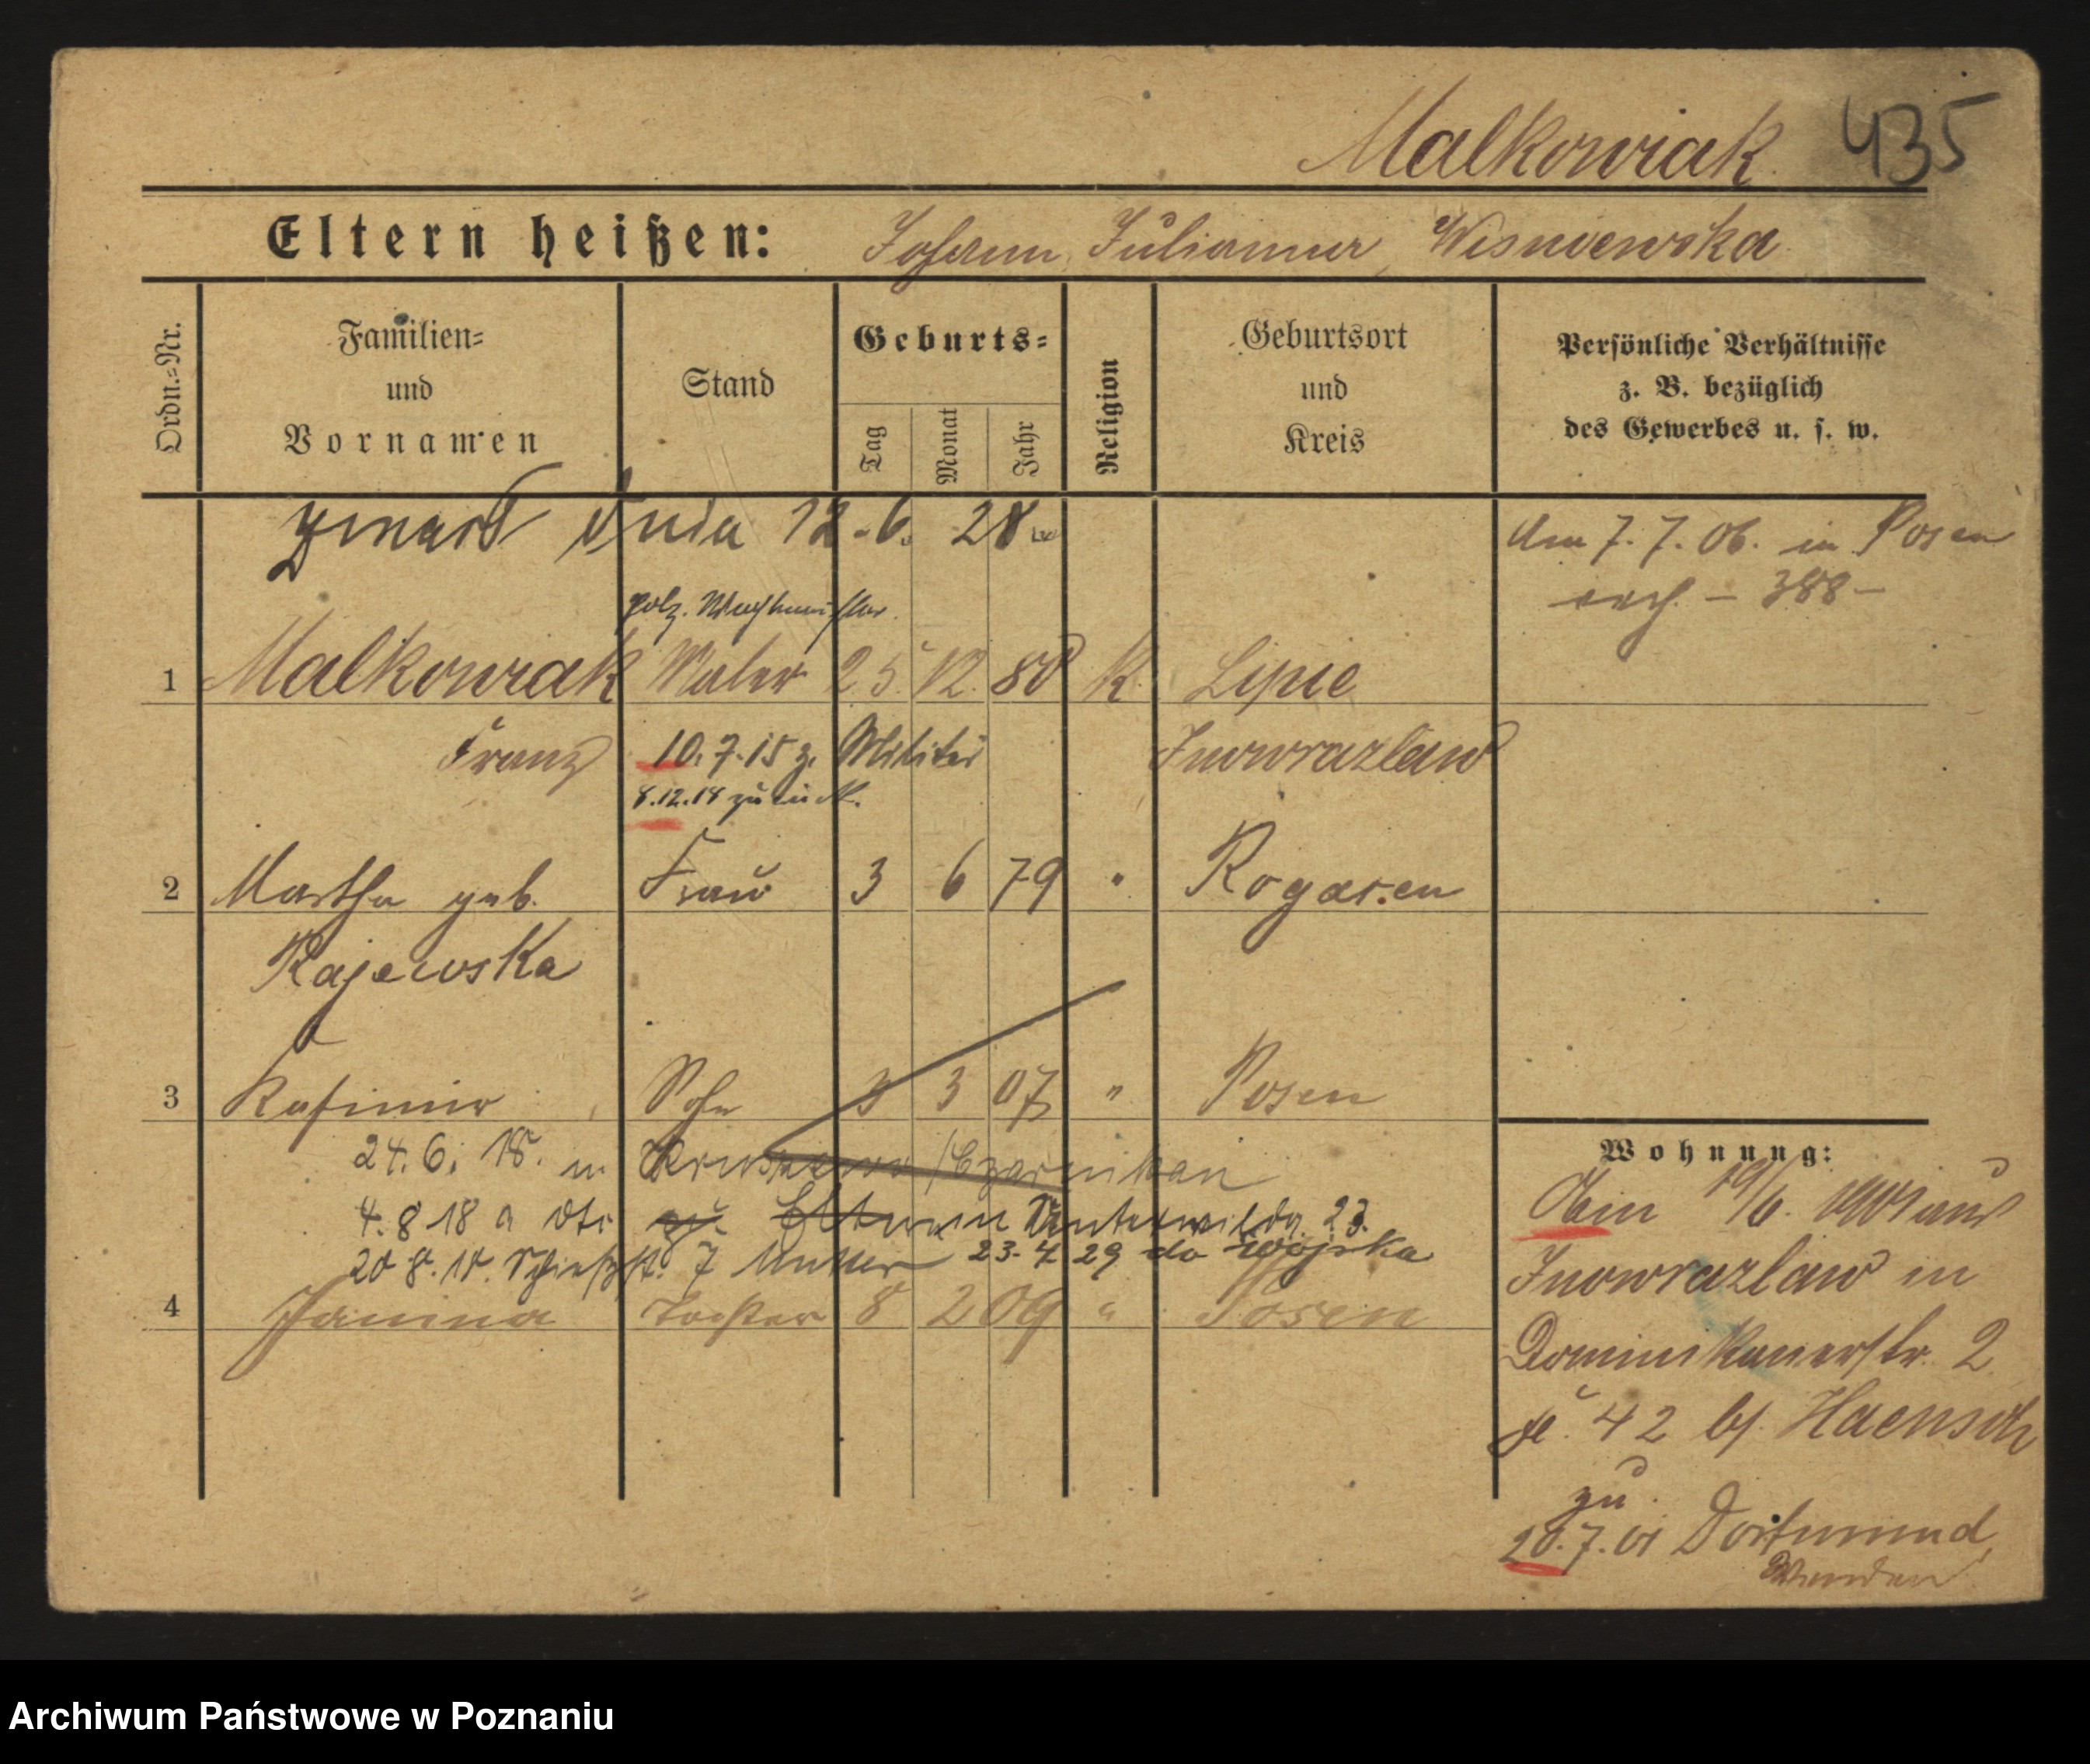 Malkowiak. 435
Eltern heißen: Johann, Julianna, Wisniewska
Ordn.=Nr.
Familien=
und
Vornamen
Stand
Geburts=
Tag
Monat
Jahr
Religion
Geburtsort
und
Kreis
Persönliche Verhältnisse
z. B. bezüglich
des Gewerbes u. s. w.
zmarł dnia 12.6. 28
Am 7. 7. 06. in Posen
388
polz. Wachtmeister.
1 Malkowiak Maler 25. 12. 80 K. Lipie
Franz 10. 7. 15 z. Militär Inowrazlaw
8.12.18 zurück.
2 Martha geb. Frau 3 6 79 " Rogasen
Rajewska
3 Kasimir Sohn 3 3 07 " Posen
24. 6. 18. in /Czarnikau
4. 8 18 a dto zu Eltern Unterwilda 23.
20 8. 18. Schießstr. 7 Mutter 23. 4 29 do wojska
4 Janina Tochter 8 2 09 " Posen
Wohnung:
19/6. 1901 aus
Inowrazlaw in
Dominikanerstr. 2
42 bf. Haensch
zu
20. 7. 01 Dortmund,